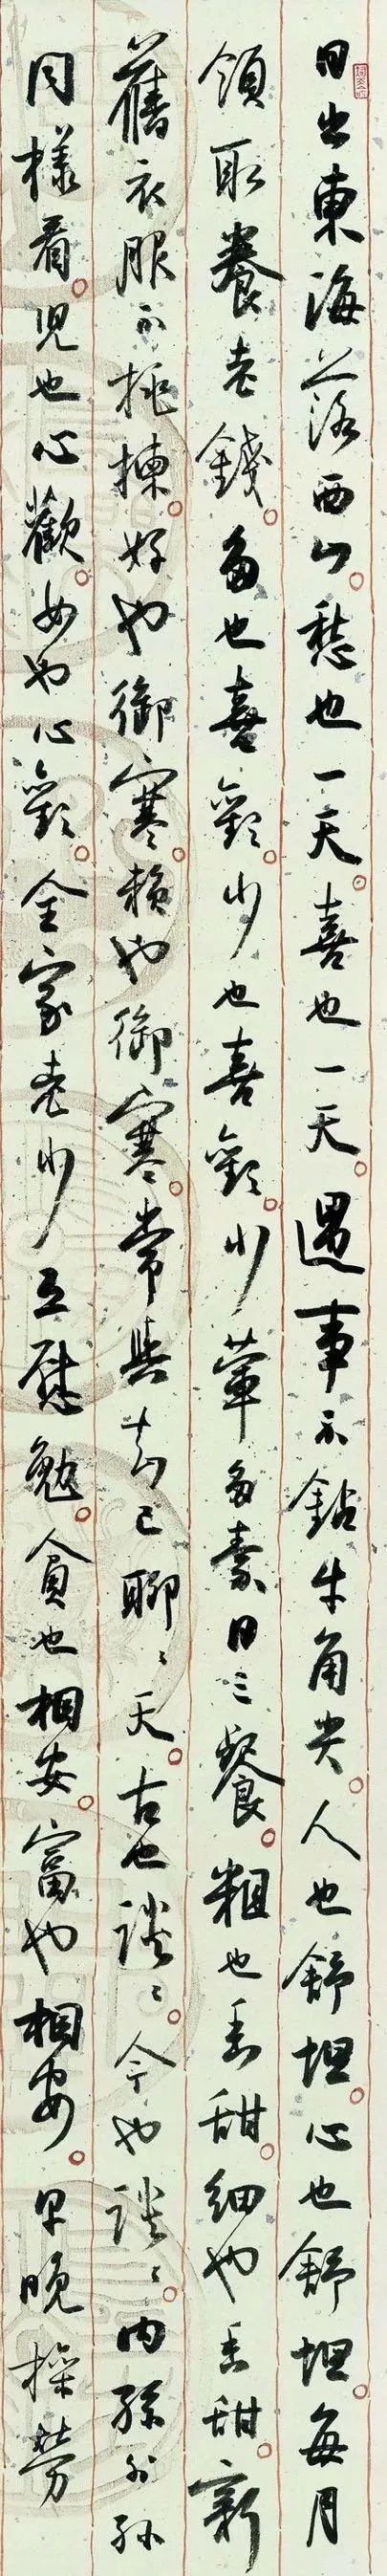 日出東海落西山。愁也一天。喜也一天。遇事不鈷牛角尖。人也舒坦。心也舒坦。每月
領取養老錢。多也喜歡。少也喜歡。少葷多素日三餐。粗也香甜。細也香甜。新
舊衣服不挑揀。好也御寒。賴也御寒。常與知己聊聊天。古也談談。今也談談。內孫外孫
同樣看。児也心歡。女也心歡。全家老少互慰勉。貧也相安。富也相安。早晚操勞